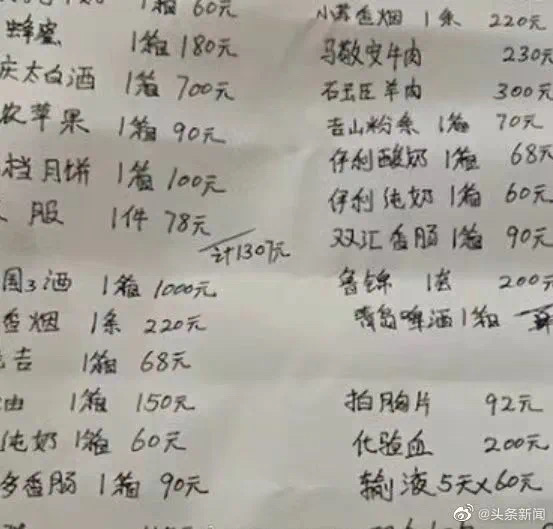 1箱 60元
蜂蜜 1箱 180元
庆太白酒 1箱 700元
苹果 1箱 90元
档月饼 1箱 100元
服 1件 78元
计1307元
国3酒 1箱 1000元
香烟 1条 220元
吉 1箱 68元
油 1箱 150元
纯奶 1箱 60元
多香肠 1箱 90元
小苏香烟 1条 220元
马敬安牛肉 230元
石玉臣羊肉 300元
吉山粉条 1箱 70元
伊利酸奶 1箱 68元
伊利纯奶 1箱 60元
双汇香肠 1箱 90元
鲁锦 1套 200元
青岛啤酒 1箱
拍胸片 92元
化验血 200元
输液5天×60元
@头条新闻